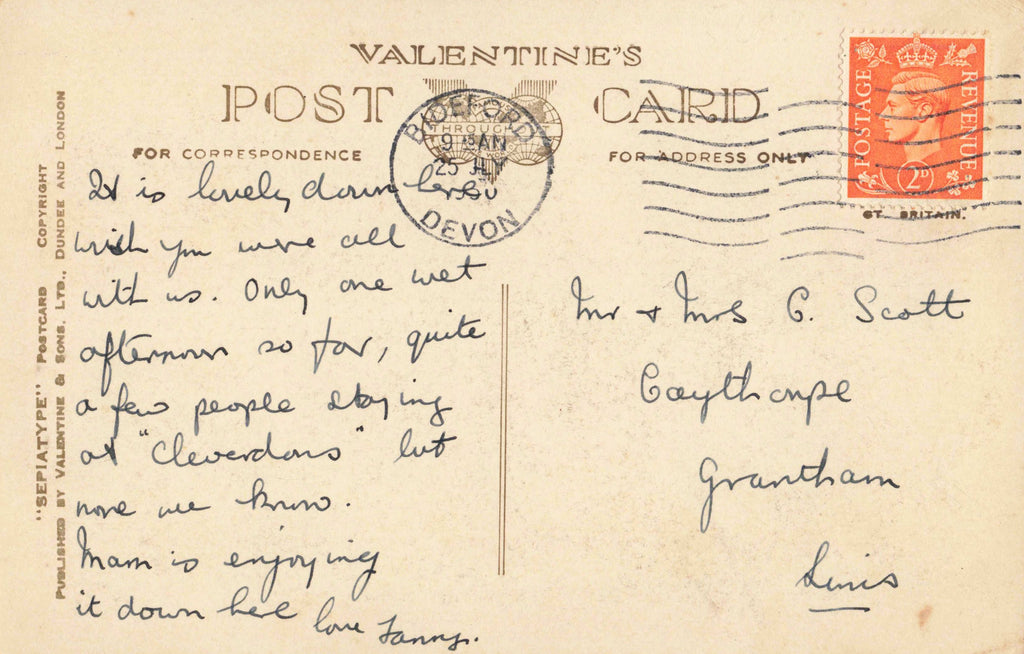 VALENTINE'S
POST CARD
FOR CORRESPONDENCE
FOR ADDRESS ONLY
"SEPIATYPE" POSTCARD COPYRIGHT
PUBLISHED BY VALENTINE & SONS, LTD., DUNDEE AND LONDON
BIDEFORD
9 15 AM
25 JLY
1950
DEVON
THROUGH
POSTAGE
REVENUE
2D
GT. BRITAIN.
It is lovely down here
wish you were all
with us. Only one wet
afternoon so far, quite
a few people staying
at "Cleverdons" but
none we know.
Mam is enjoying
it down here love Fanny.
Mr & Mrs C. Scott
Caythorpe
Grantham
Lincs